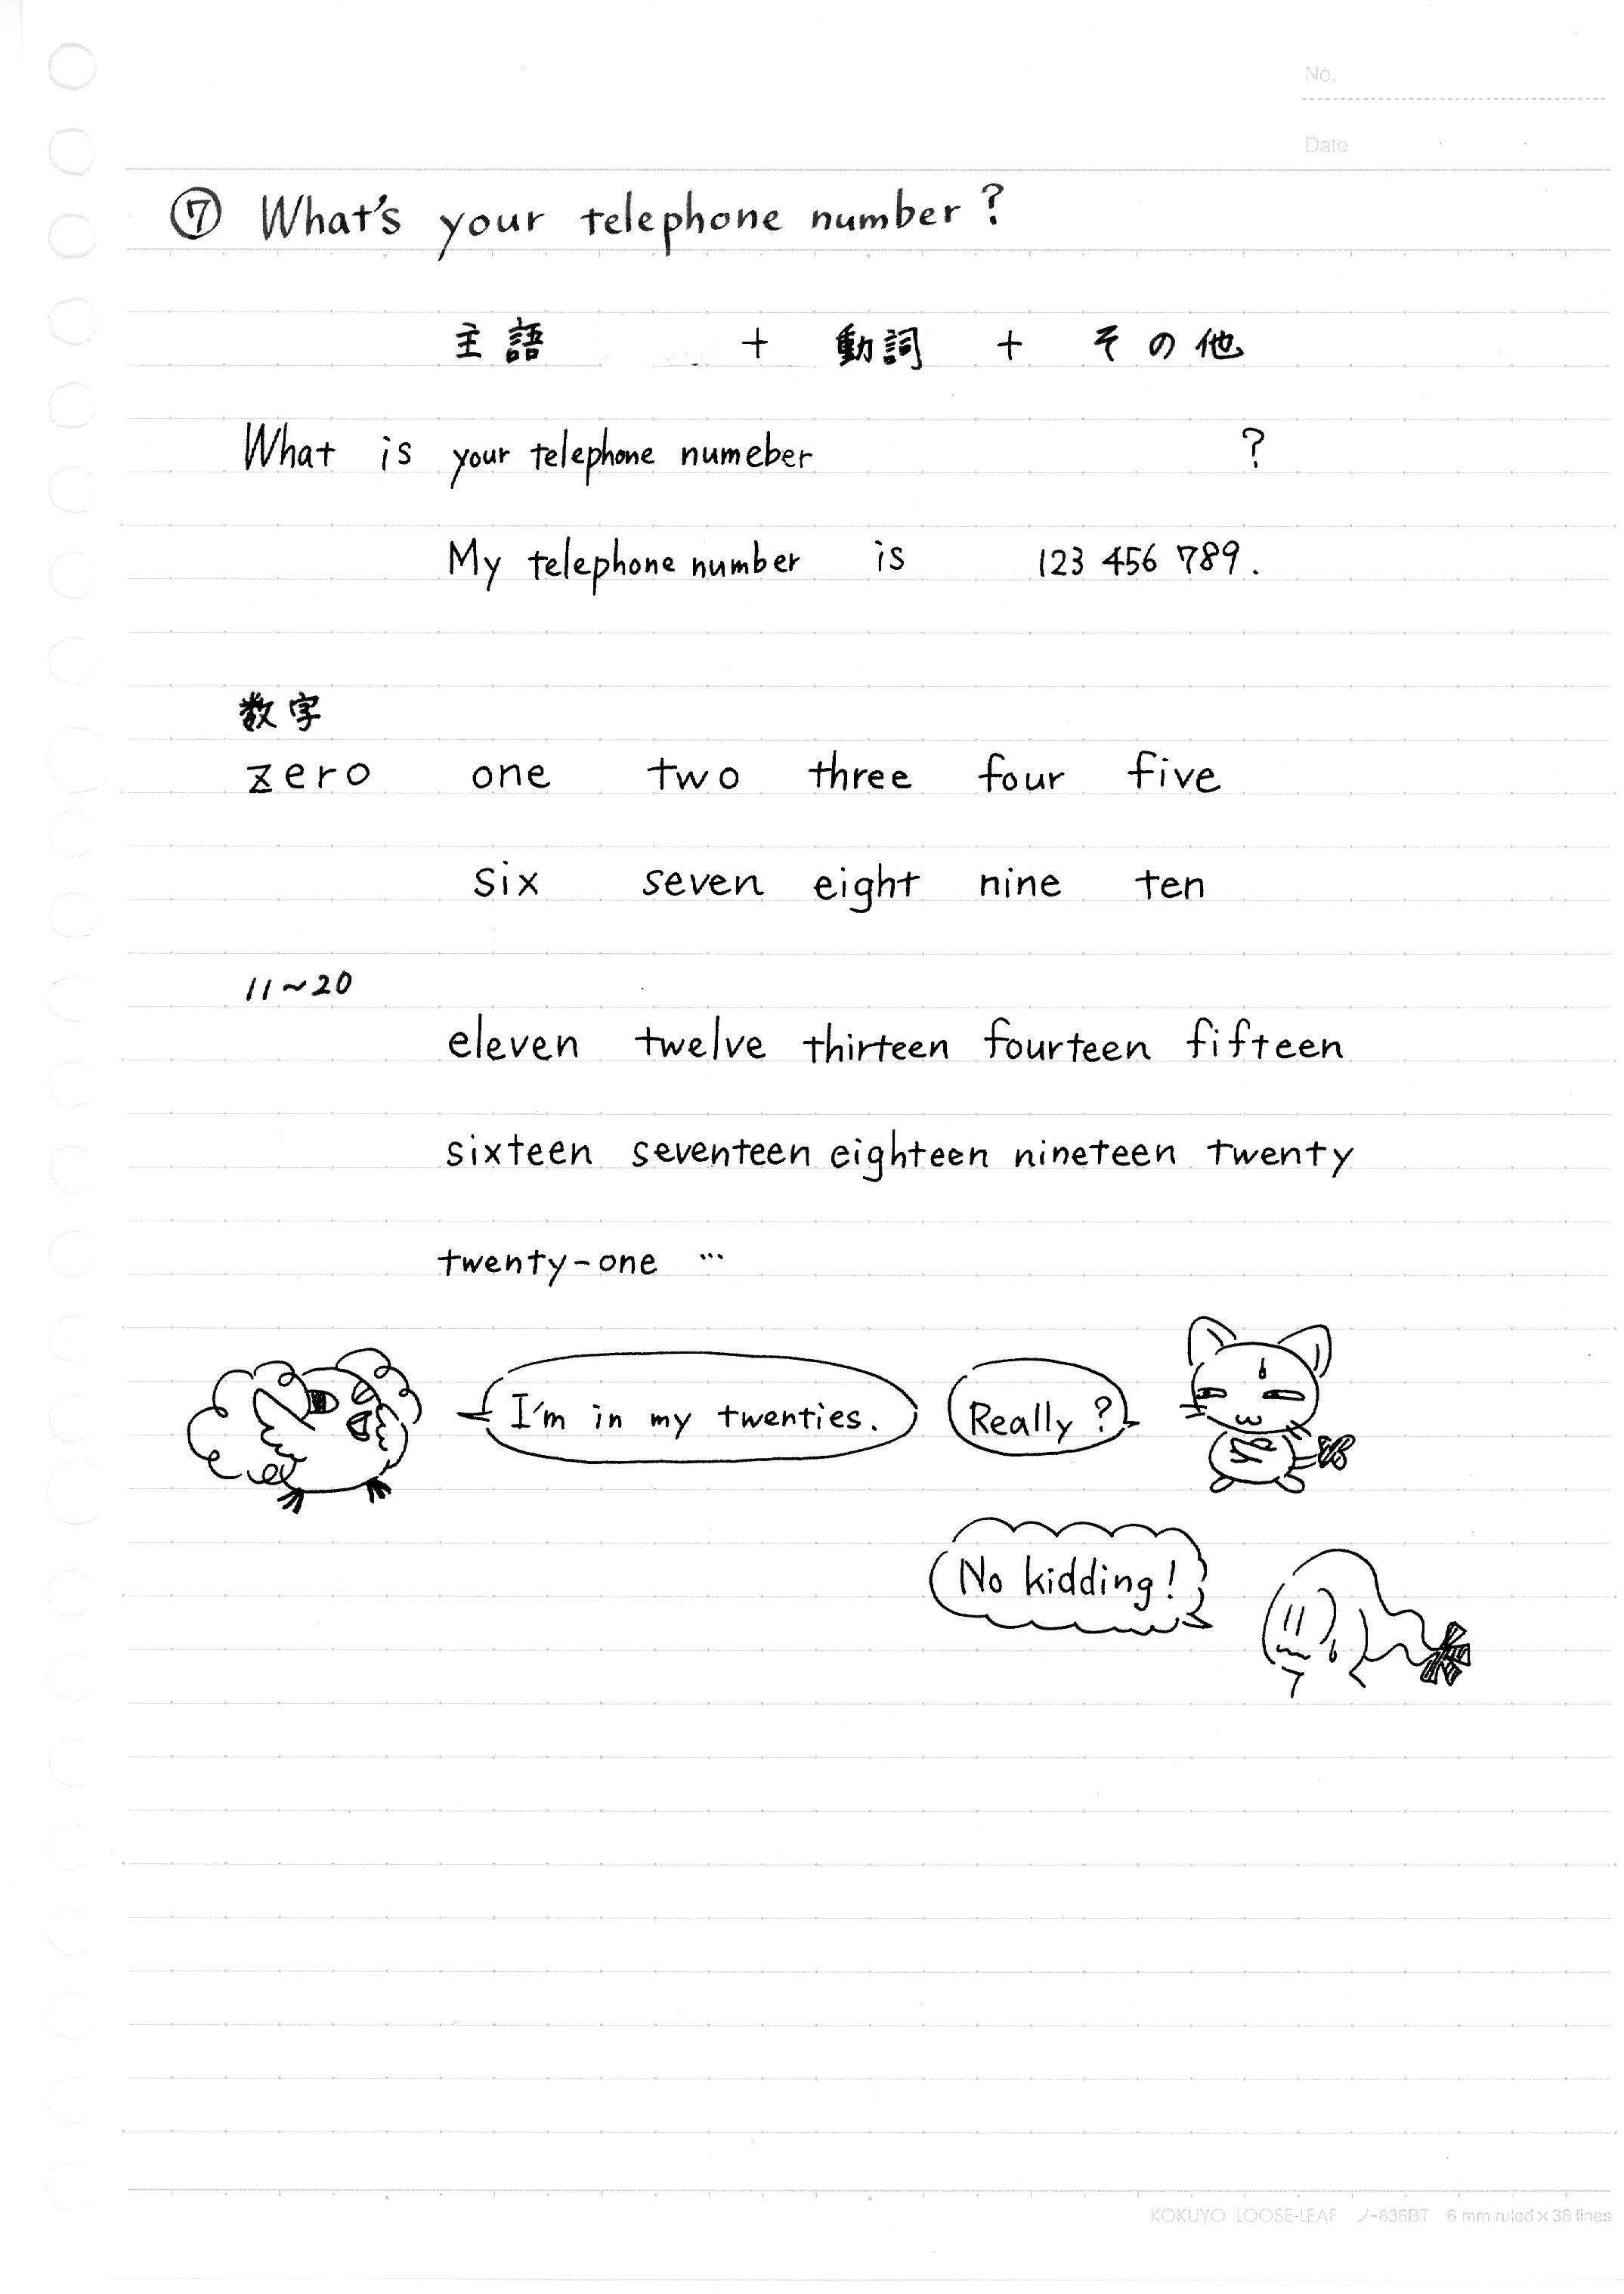 No.
Date
⑦ What's your telephone number?
主語 + 動詞 + その他
What is your telephone numeber ?
My telephone number is 123 456 789.
数字
zero one two three four five
six seven eight nine ten
11~20
eleven twelve thirteen fourteen fifteen
sixteen seventeen eighteen nineteen twenty
twenty-one …
I'm in my twenties. Really?
No kidding!
KOKUYO LOOSE-LEAF ノ-836BT 6 mm ruled×36 lines